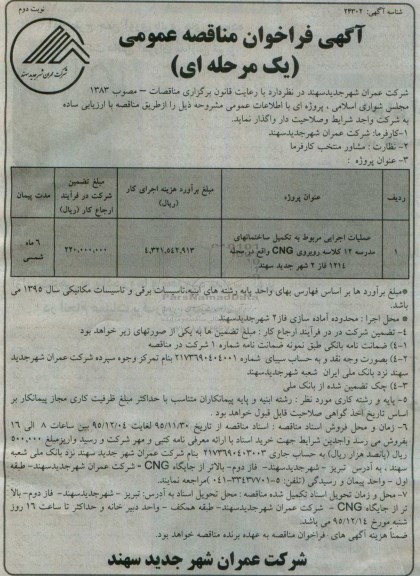 شناسه آگهی: ۲۴۳۰۲
نوبت دوم
آگهی فراخوان مناقصه عمومی
(یک مرحله ای)
شرکت عمران شهر جدید سهند
شرکت عمران شهرجدیدسهند در نظردارد با رعایت قانون برگزاری مناقصات – مصوب ۱۳۸۳
مجلس شورای اسلامی ، پروژه ای با اطلاعات عمومی مشروحه ذیل را ازطریق مناقصه با ارزیابی ساده
به شرکت واجد شرایط وصلاحیت دار واگذار نماید.
۱-کارفرما: شرکت عمران شهرجدیدسهند
۲- نظارت : مشاور منتخب کارفرما
۳- عنوان پروژه :
ردیف
عنوان پروژه
مبلغ برآورد هزینه اجرای کار (ریال)
مبلغ تضمین شرکت در فرآیند ارجاع کار (ریال)
مدت پیمان
۱
عملیات اجرایی مربوط به تکمیل ساختمانهای مدرسه ۱۲ کلاسه روبروی CNG واقع در محله ۱۲۱۴ فاز ۲ شهر جدید سهند
۴,۳۲۱,۵۴۲,۹۱۳
۲۲۰,۰۰۰,۰۰۰
۶ ماه شمسی
*مبلغ برآورد ها بر اساس فهارس بهای واحد پایه رشته های ابنیه،تاسیسات برقی و تاسیسات مکانیکی سال ۱۳۹۵ می باشد.
* محل اجرا : محدوده آماده سازی فاز۲ شهرجدیدسهند
۴- تضمین شرکت در در فرآیند ارجاع کار : مبلغ تضمین ها به یکی از صورتهای زیر خواهد بود
۴-۱) ضمانت نامه بانکی طبق نمونه ضمانت نامه شماره ۱ شرکت در مناقصه
۴-۲) بصورت وجه نقد و به حساب سیبای شماره ۲۱۷۳۶۹۰۴۰۴۰۰۱ بنام تمرکز وجوه سپرده شرکت عمران شهرجدید
سهند نزد بانک ملی ایران شعبه شهرجدیدسهند
۴-۳) چک تضمین شده از بانک ملی
۵- پایه و رشته کاری مورد نظر : رشته ابنیه و پایه پیمانکاران متناسب با حداکثر مبلغ ظرفیت کاری مجاز پیمانکار بر
اساس تاریخ اخذ گواهی صلاحیت قابل قبول خواهد بود .
۶- زمان و محل فروش اسناد مناقصه : اسناد مناقصه از تاریخ ۹۵/۱۱/۳۰ لغایت ۹۵/۱۲/۰۴ بین ساعات ۸ الی ۱۶
بفروش می رسد واجدین شرایط جهت خرید اسناد با ارائه معرفی نامه کتبی و مهر شرکت و رسید واریزمبلغ ۵۰۰,۰۰۰
ریال (پانصد هزار ریال) به حساب جاری ۲۱۷۳۶۹۰۴۰۳۰۰۳ بنام شرکت عمران شهر جدید سهند نزد بانک ملی شعبه
سهند ، به آدرس : تبریز - شهرجدیدسهند- فاز دوم- بالاتر از جایگاه CNG - شرکت عمران شهرجدیدسهند- طبقه
اول - واحد پیمان و رسیدگی (تلفن: ۵-۳۳۴۳۷۷۰۱-۰۴۱) مراجعه نمایند.
۷- محل و زمان تحویل اسناد تکمیل شده مناقصه : محل تحویل اسناد به آدرس: تبریز - شهرجدیدسهند- فاز دوم- بالا
تر از جایگاه CNG - شرکت عمران شهرجدیدسهند- طبقه همکف - واحد دبیر خانه و حداکثر تا ساعت ۱۶ روز
شنبه مورخ ۹۵/۱۲/۱۴ می باشد.
ضمنا هزینه آگهی های فراخوان مناقصه به عهده برنده مناقصه خواهد بود.
شرکت عمران شهر جدید سهند